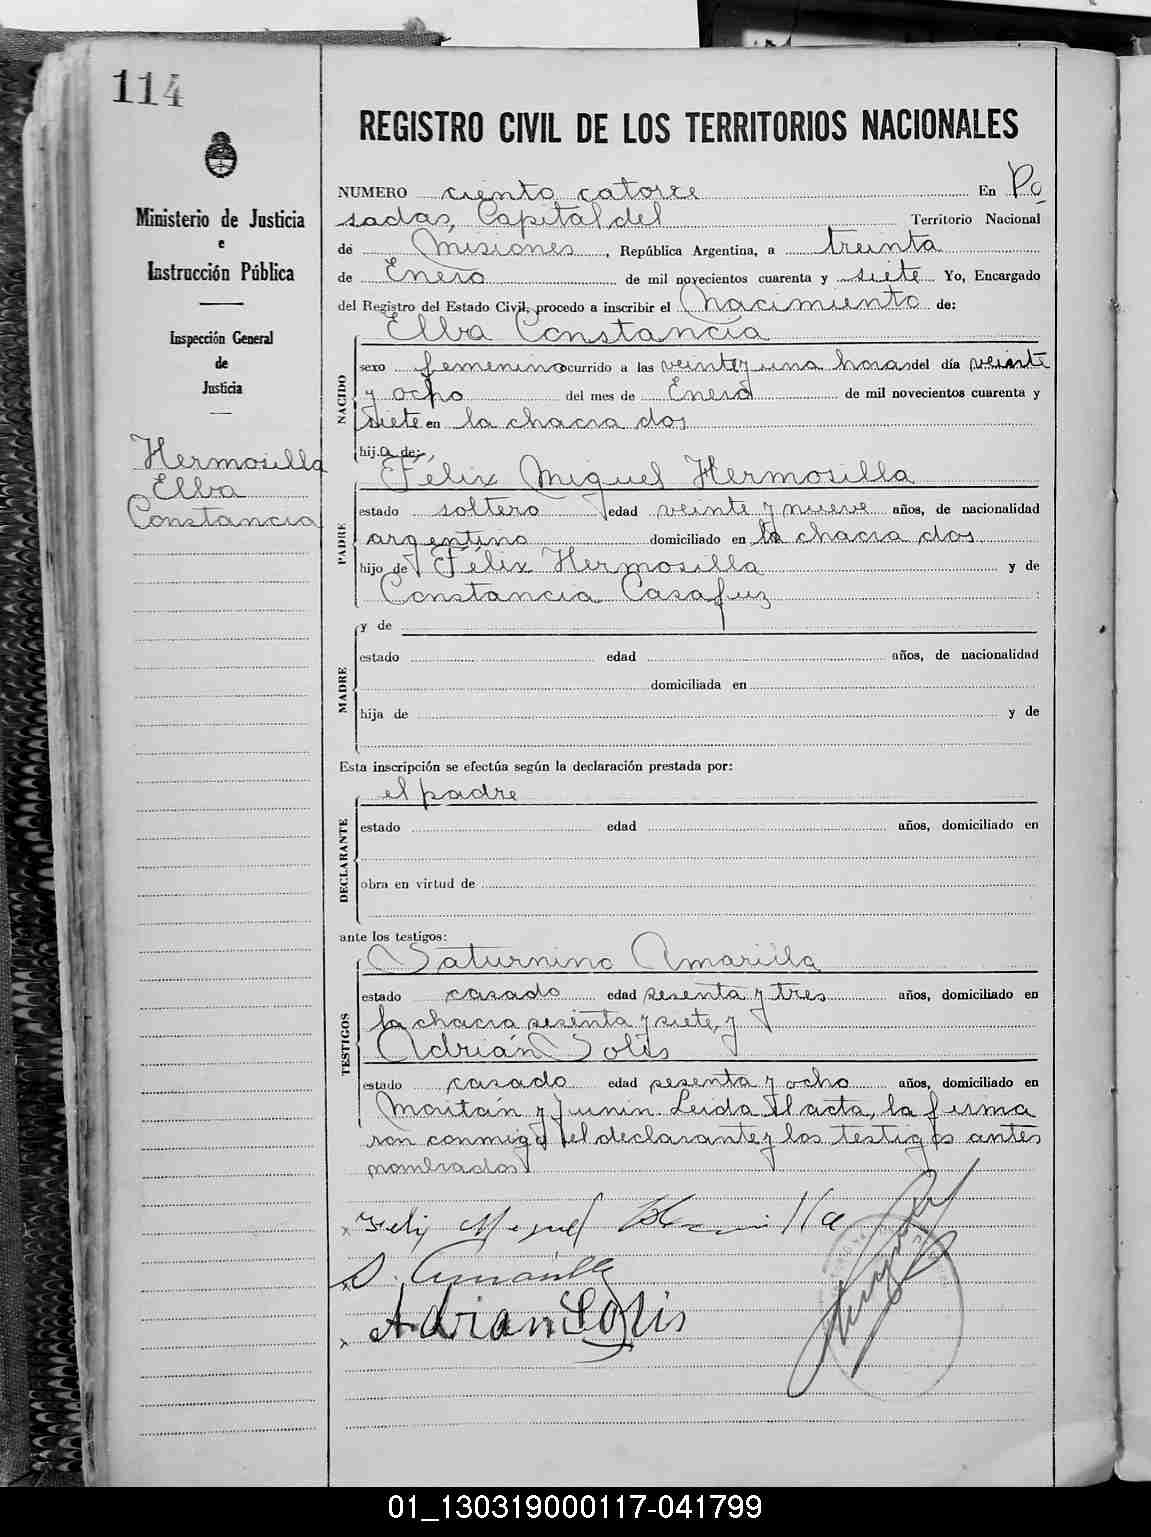 114
Ministerio de Justicia
e
Instrucción Pública
Inspección General
de
Justicia
Hermosilla
Elba
Constancia
REGISTRO CIVIL DE LOS TERRITORIOS NACIONALES
NUMERO ciento catorce En Po
sadas, Capital del Territorio Nacional
de Misiones, República Argentina, a treinta
de Enero de mil novecientos cuarenta y siete Yo, Encargado
del Registro del Estado Civil, procedo a inscribir el Nacimiento de:
Elba Constancia
NACIDO
sexo femenino ocurrido a las veinte y una horas del día veinte
y ocho del mes de Enero de mil novecientos cuarenta y
siete en la chacra dos
hij.a de:
Félix Miguel Hermosilla
PADRE
estado soltero edad veinte y nueve años, de nacionalidad
argentino domiciliado en la chacra dos
hijo de Félix Hermosilla y de
Constancia Casafuz
MADRE
y de
estado edad años, de nacionalidad
domiciliada en
hija de y de
Esta inscripción se efectúa según la declaración prestada por:
el padre
DECLARANTE
estado edad años, domiciliado en
obra en virtud de
ante los testigos:
Saturnino Amarilla
TESTIGOS
estado casado edad sesenta y tres años, domiciliado en
la chacra sesenta y siete, y
Adrián Solis
estado casado edad sesenta y ocho años, domiciliado en
Moritán y Junin. Leida el acta, la firma
ron conmigo el declarante y los testigos antes
nombrados
x Felix Miguel Hermosilla
x S. Amarilla
x Adrian Solis
01_130319000117-041799